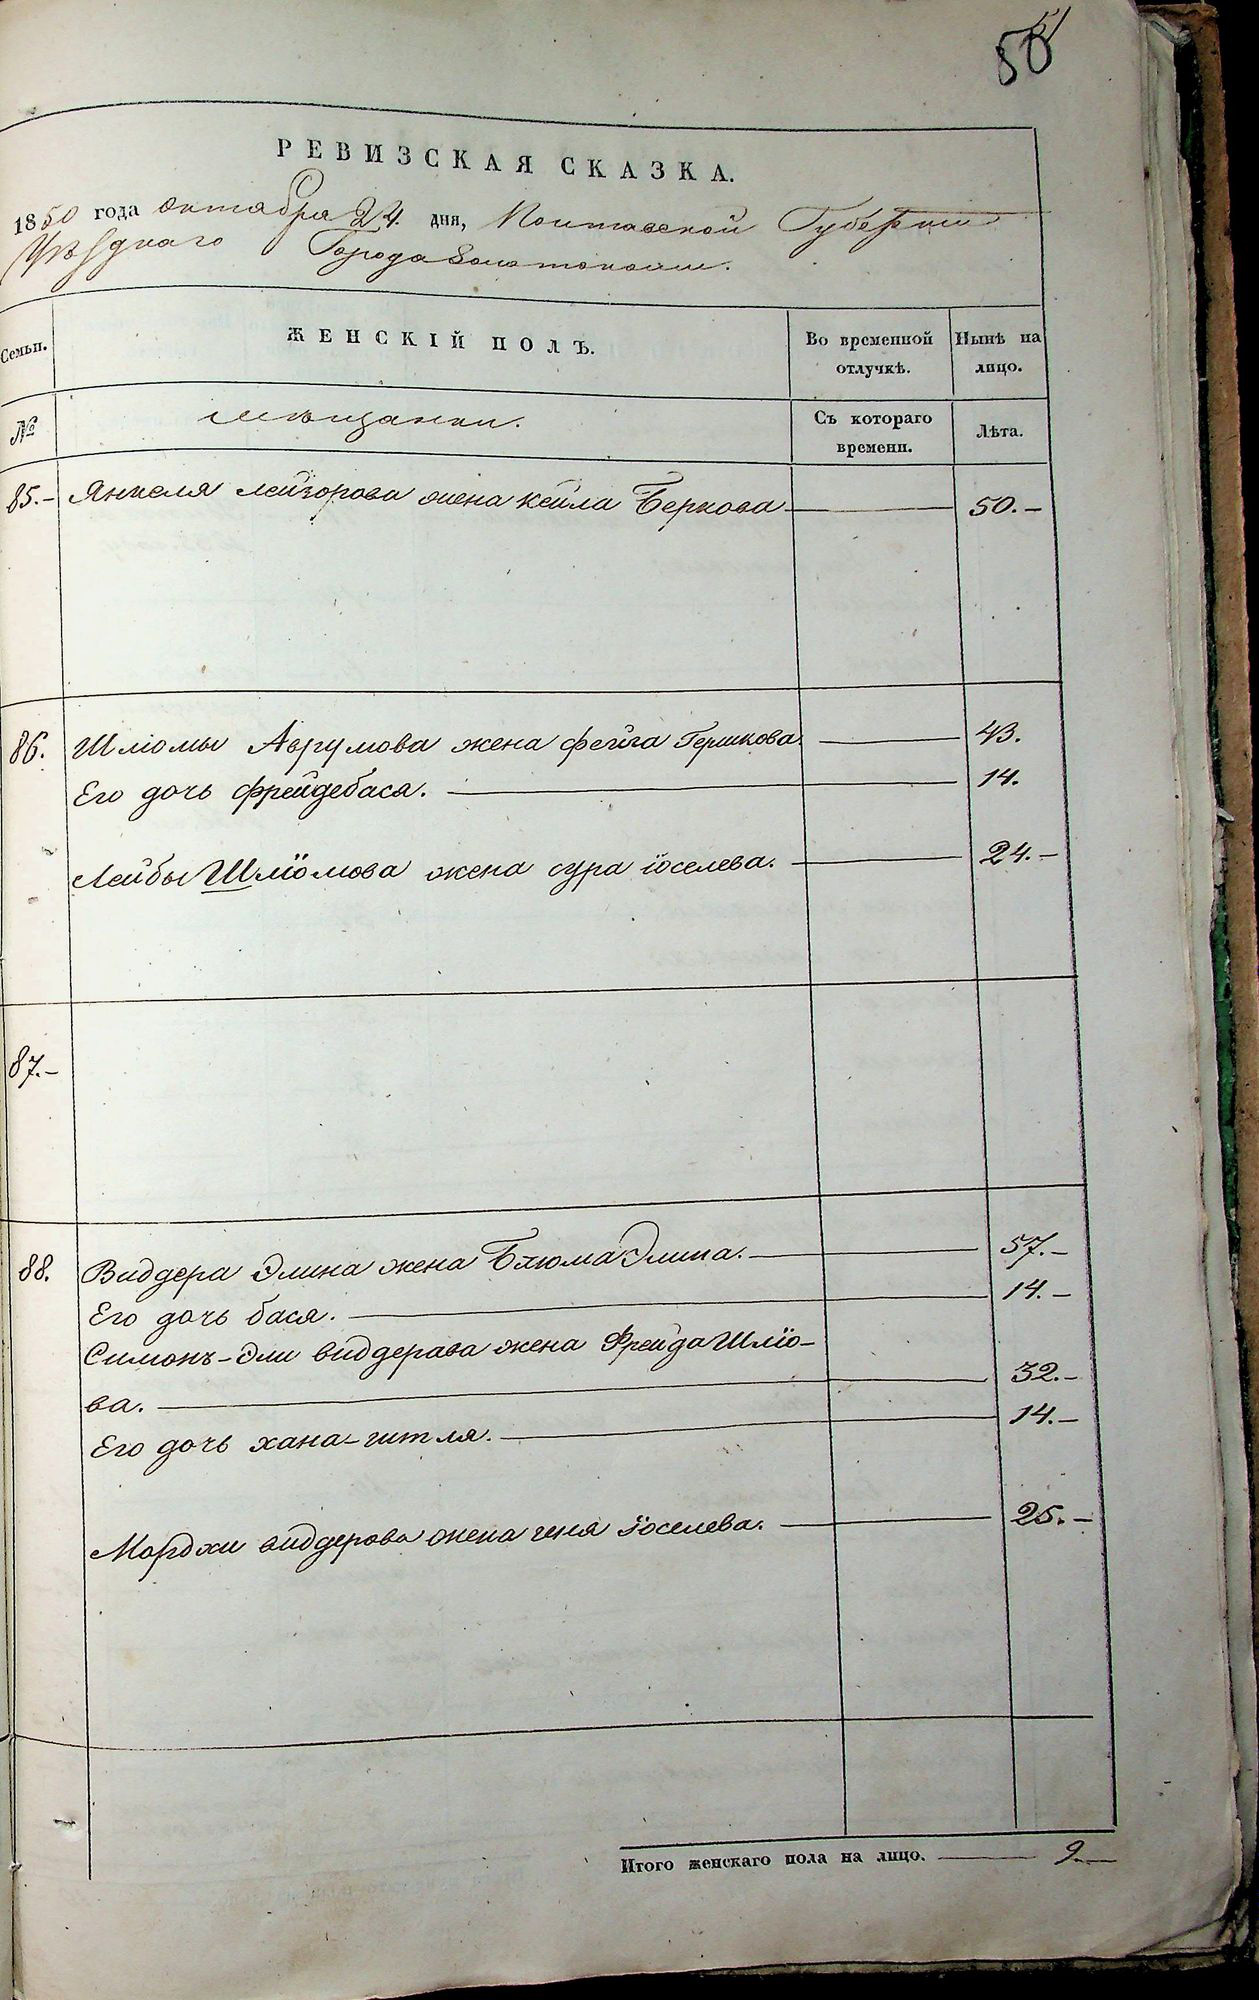 50
51
РЕВИЗСКАЯ СКАЗКА.
1850 года октября 24 дня, Полтавской Губернии
Уѣзднаго Города Золотоноши.
Семьи.
ЖЕНСКІЙ ПОЛЪ.
Во временной отлучкѣ.
Нынѣ на лицо.
№
мѣщанки.
Съ котораго времени.
Лѣта.
85.- Янкеля лейзорова жена Кейла Беркова 50.-
86. Шлюмы Аврумова жена фейга Гершкова 43.
Его дочь фрейдебася. 14.
Лейбы Шліомова жена сура іоселева. 24.-
87.-
88. Виддера Элина жена Блюма Элина. 57.-
Его дочь бася. 14.-
Симонъ-Эли виддерава жена Фрейда Шліо-
ва. 32.-
Его дочь хана-гитля. 14.-
Мордхи виддерова жена геня іоселева. 25.-
Итого женскаго пола на лицо. 9.-